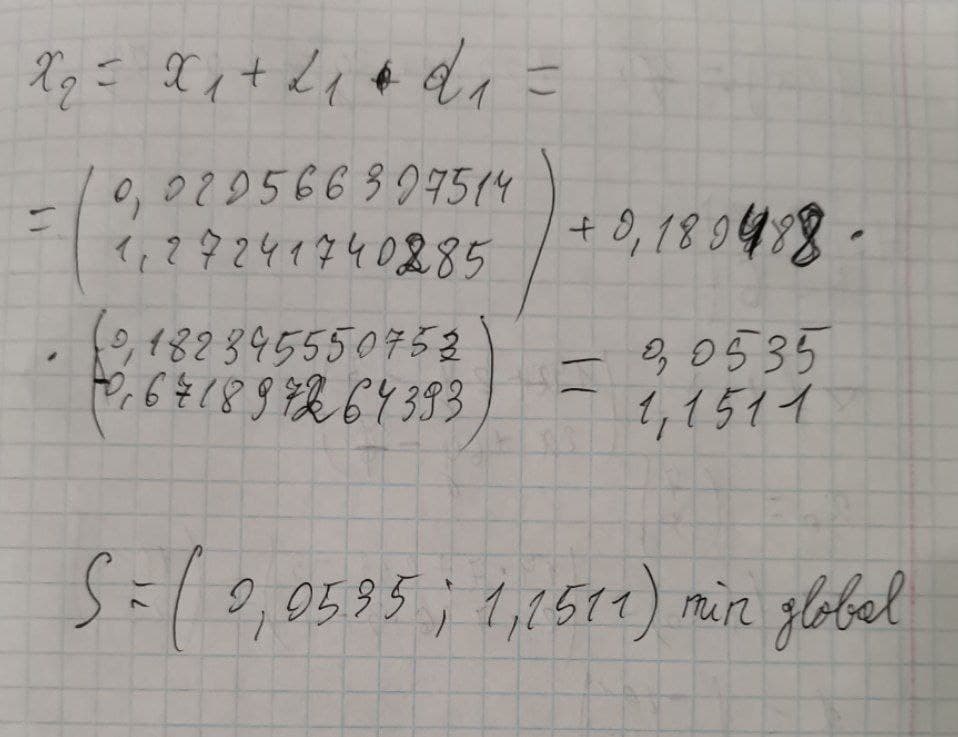 x₂ = x₁ + α₁ · d₁ =
= ( 0,020566307514
1,27241740285 ) + 0,180488 ·
· ( 0,182345550753
-0,671897264393 ) = 0,0535
1,1511
S = ( 0,0535 ; 1,1511 ) min global